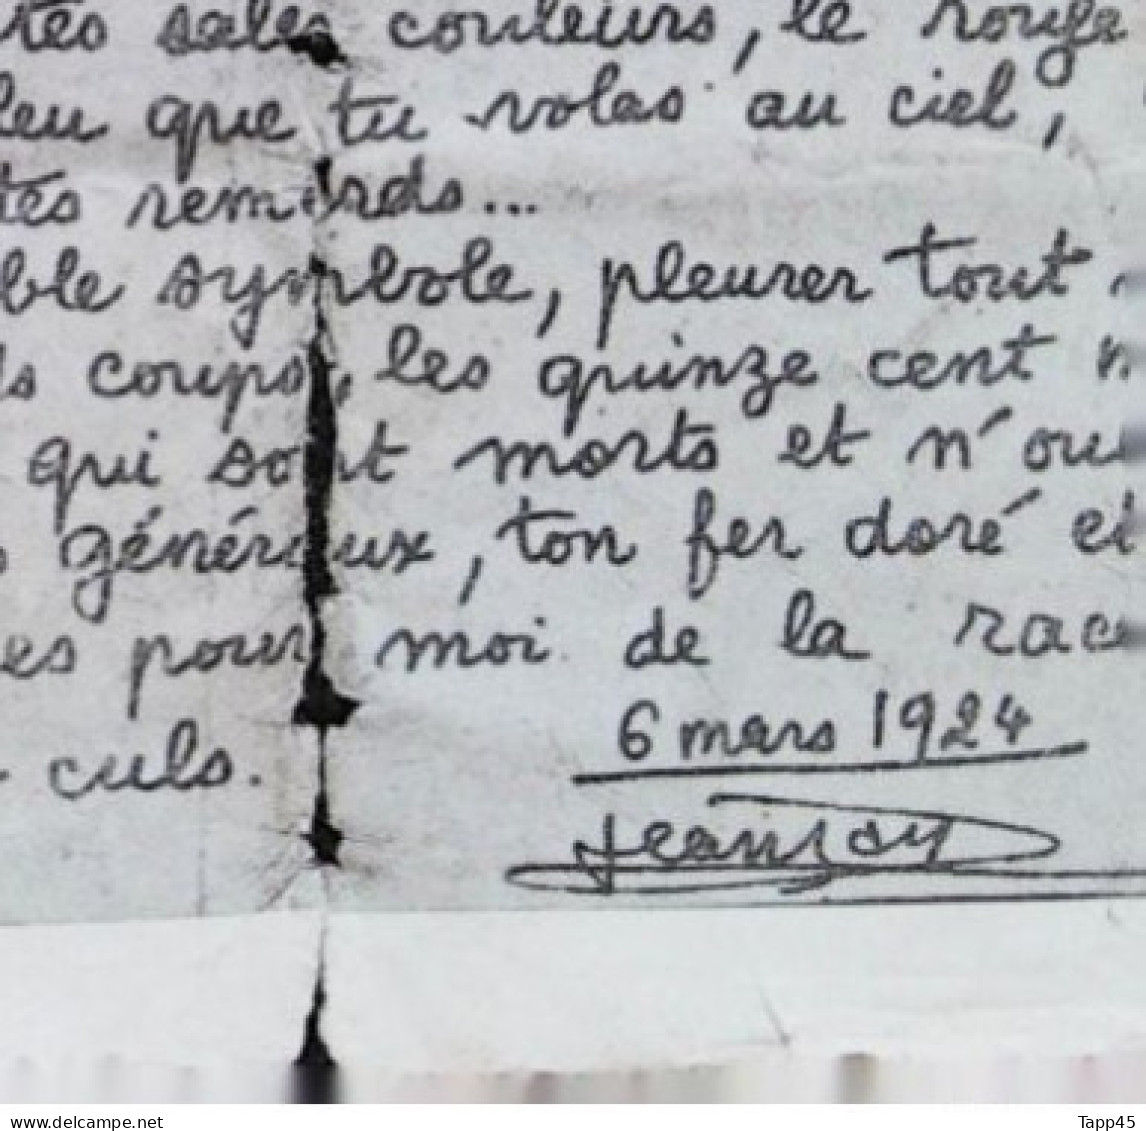 tes sales couleurs, le rouge
leu que tu volas au ciel,
tes remords...
ble symbole, pleurer tout
s coups, les quinze cent
qui sont morts et n'ou
généreux, ton fer doré et
es pour moi de la race
culs.
6 mars 1924
Jeanzay
delcampe.net
Tapp45